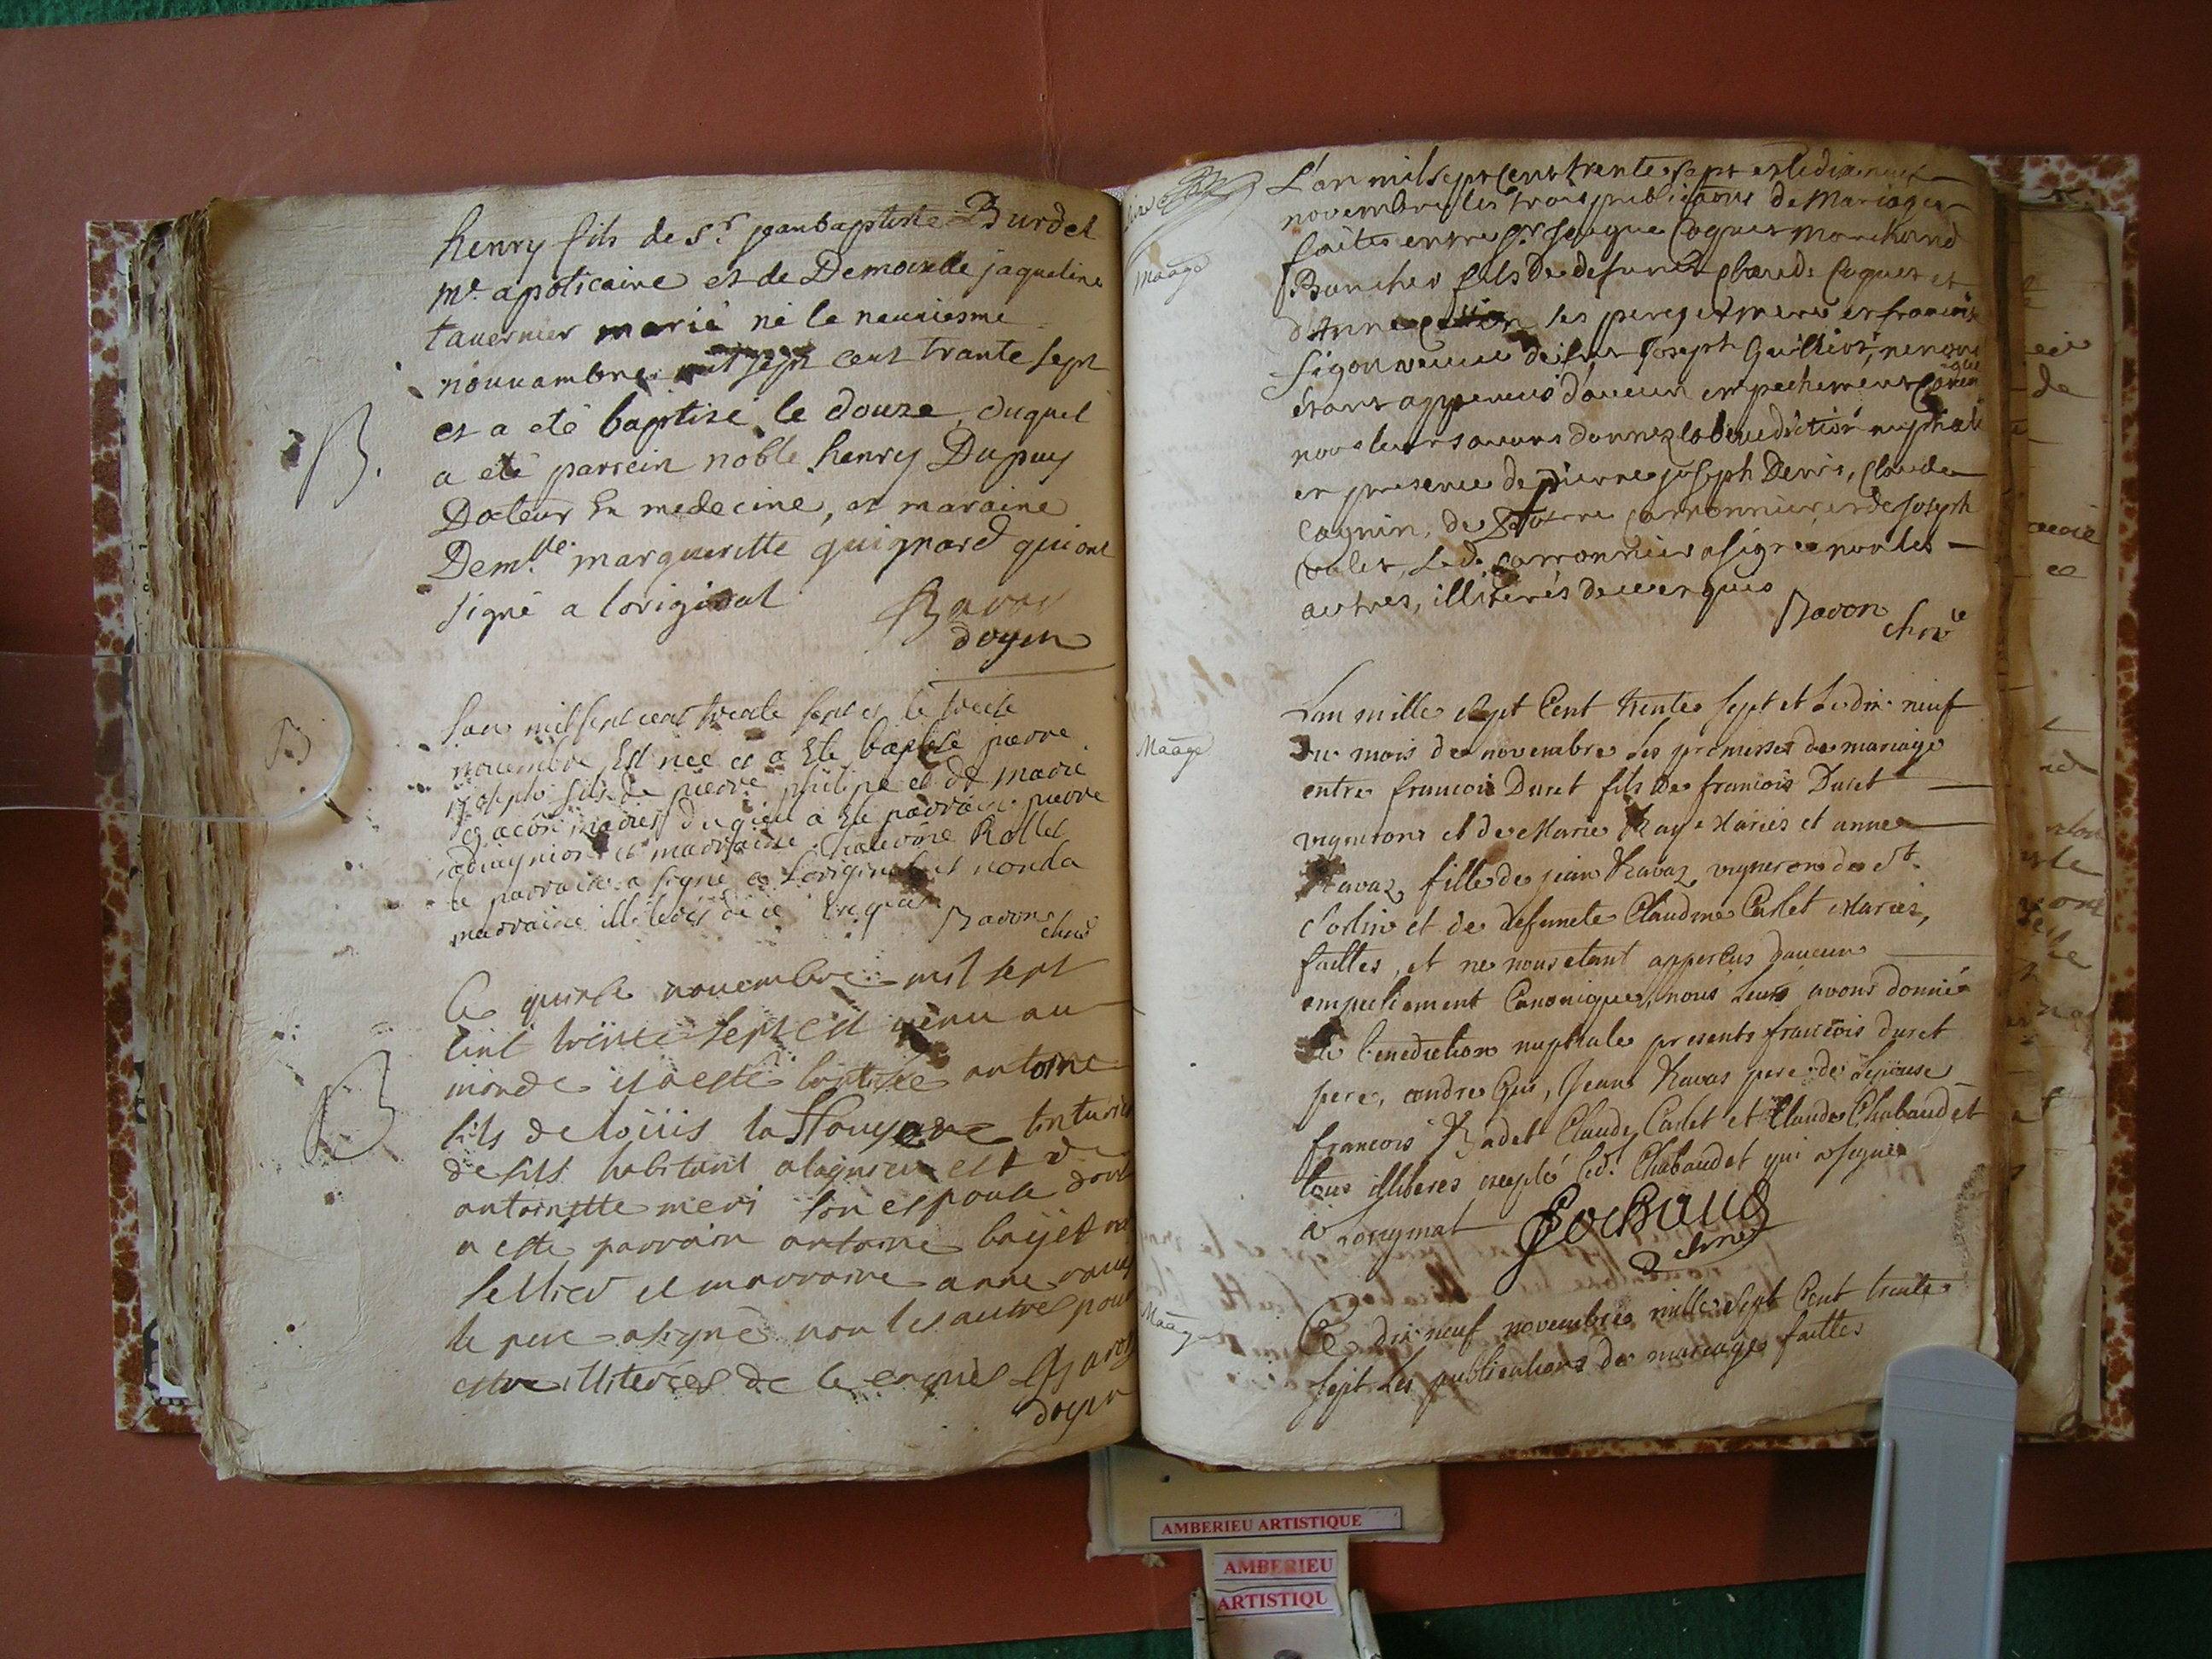 henry fils de Sr. jean baptiste Burdet
Me. apoticaire et de Demoiselle jaqueline
tauernier marié né le neuuiesme
nouuambre mil sept cent trante sept
et a eté baptisé le douze, duquel
B.
a eté parrein noble henry Dupuy
Docteur En medecine, et maraine
Dem.lle margueritte guignard qui ont
signé a loriginal
Bavoz
doyen
B
Lan mil sept cent trente sept et le treise
nouembre Est née et a Ete baptisé pierre
joseph fils de pierre philipe et de marie
mariés duquel a Ete parrain pierre
et marraine Rollet
le parrain a signe a Loriginal et non la
marraine illiterés de ce Enquis
Ravon
Ce quinse nouembre mil sept
cent trente sept est venu au
monde et a esté baptisée antoine
B
fils de loüis la tinturier
de habitant a lagnieu et de
antoinette meri son espouse dont
a esté parrain antoine bayet
sellier et marraine anne
le pere a signé non les autres pour
estre illiterés de ce enquis
Bavoz
doyen
L'an mil sept cent trente sept et le dix neuf
novembre les trois publications de Mariage
Maãge
faites entre Sr. Coquet marchand
Boucher fils de defunct Claude Coquet et
d'Anne ses pere et mere et francoise
Sigon veuve de Joseph Guilliot, ne nous
étant apperceus d'aucun empechement canonique
nous leur avons donnez la benediction nuptiale
en presence de Pierre joseph Denis, Claude
Cagnin, de Pierre Carronnier et de Joseph
led. Carronnier a signé non les
autres, illiterés de ce enquis
Ravon
Lan mille sept Cent trente sept et Le dix neuf
Maãge
du mois de novembre Les promesses de mariage
entre francois Duret fils de francois Duret
vignerons et de Marie Mariés et anne
Ravaz fille de jean Ravaz vigneron de St.
Sorlin et de defuncte Claudine Carlet Mariez,
faittes, et ne nous etant apperçus daucun
empechement Canonique, nous leurs avons donné
la benediction nuptiale presents francois duret
pere, andre Gui, Jean Ravas pere de Lepouse
francois Badet Claude Carlet et Claude Chabaudet
tous illiteres excepté led. Chabaudet qui a signé
a Loriginal
Maãge
Ce dix neuf novembre mille Sept Cent trente
sept Les publications de mariage faittes
AMBERIEU ARTISTIQUE
AMBERIEU
ARTISTIQU